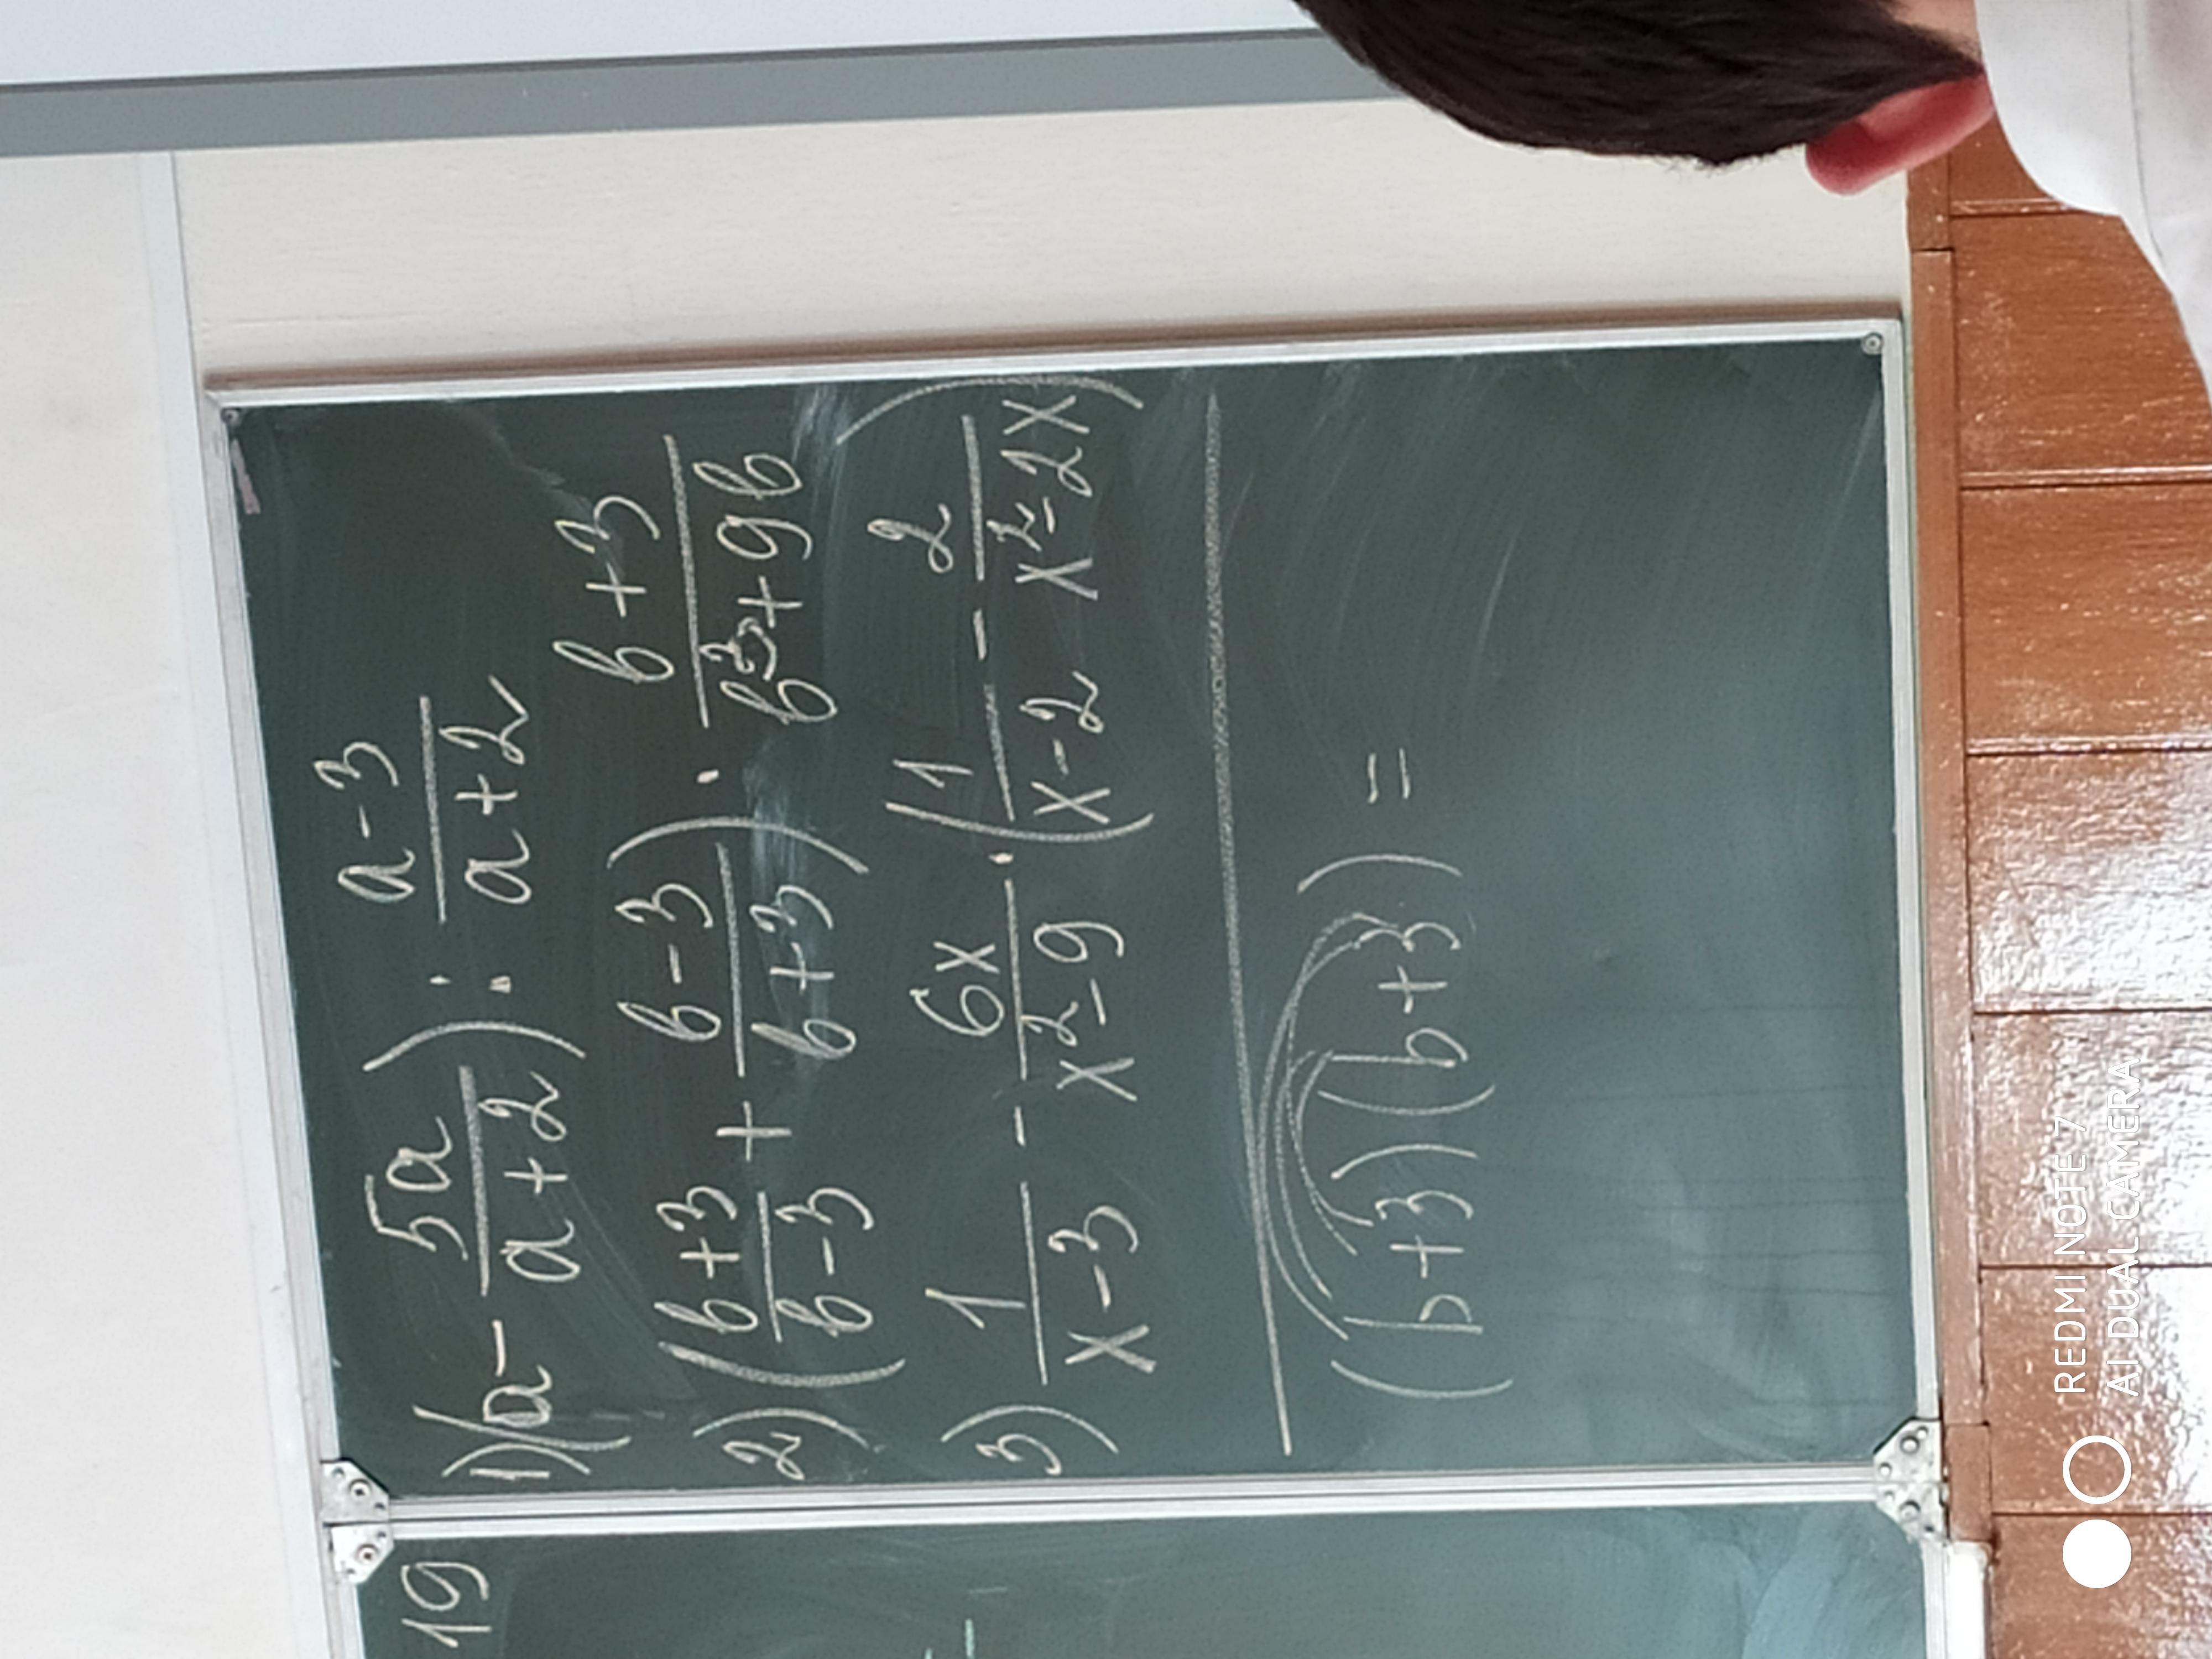 19
1) (a - 5a/(a+2)) : (a-3)/(a+2)
2) ((b+3)/(b-3) + (b-3)/(b+3)) · (b+3)/(b³+9b)
3) 1/(x-3) - 6x/(x²-9) · (1/(x-2) - 2/(x²-2x))
(b+3)(b+3) =
REDMI NOTE 7
AI DUAL CAMERA